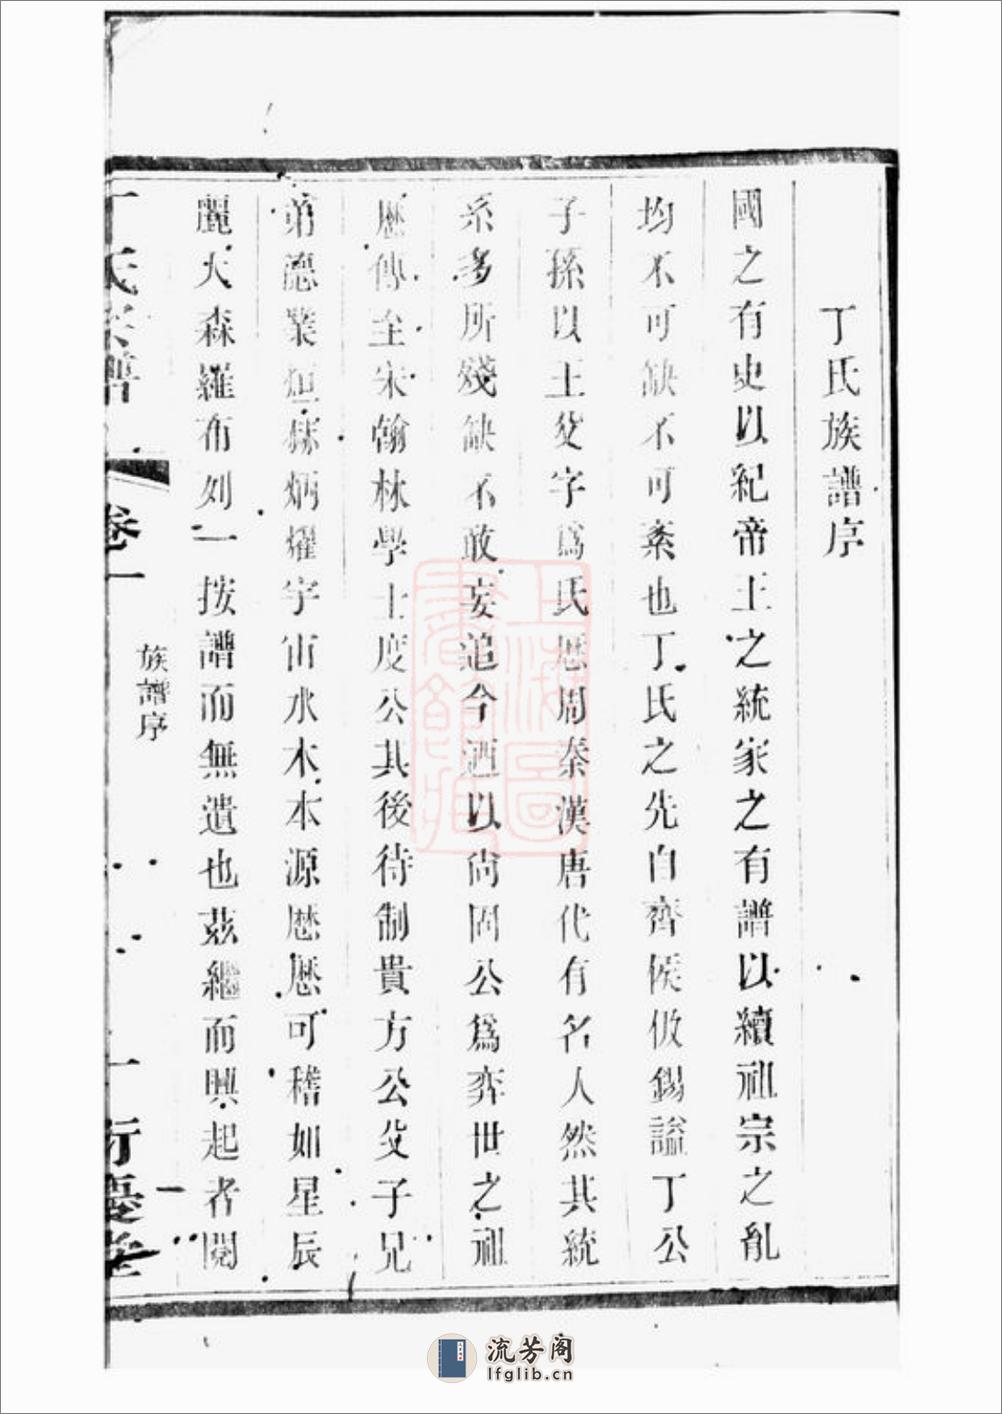 丁氏族譜序
國之有史以紀帝王之統家之有譜以續祖宗之亂
均不可缺不可紊也丁氏之先自齊侯伋錫謚丁公
子孫以王父字爲氏歷周秦漢唐代有名人然其統
系多所殘缺不敢妄追今迺以尚固公爲奕世之祖
歷傳至宋翰林學士度公其後待制貴方公父子兄
弟德業烜赫炳耀宇宙水木本源歷歷可稽如星辰
麗天森羅布列一按譜而無遺也茲繼而興起者閱
丁氏宗譜
卷一
族譜序
一
衍慶堂
上海圖
書館藏
流芳阁
lfglib.cn